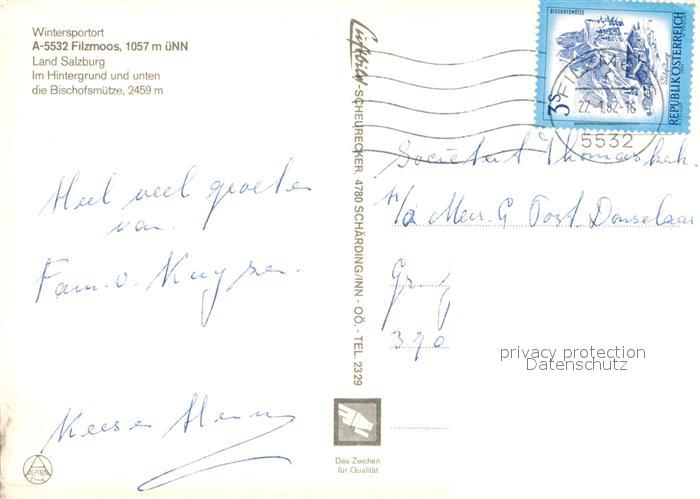 Wintersportort
A-5532 Filzmoos, 1057 m üNN
Land Salzburg
Im Hintergrund und unten
die Bischofsmütze, 2459 m
Heel veel groeten
van.
Fam. v. Kuyzen.
Kees en
ALPINA
-SCHEURECKER, 4780 SCHÄRDING/INN - OÖ. - TEL. 2329
Das Zeichen
für Qualität
BISCHOFSMÜTZE
3 S
REPUBLIK ÖSTERREICH
27.-1.82-16
5532
Societeit Thomas
G Post
Gr
390
privacy protection
Datenschutz